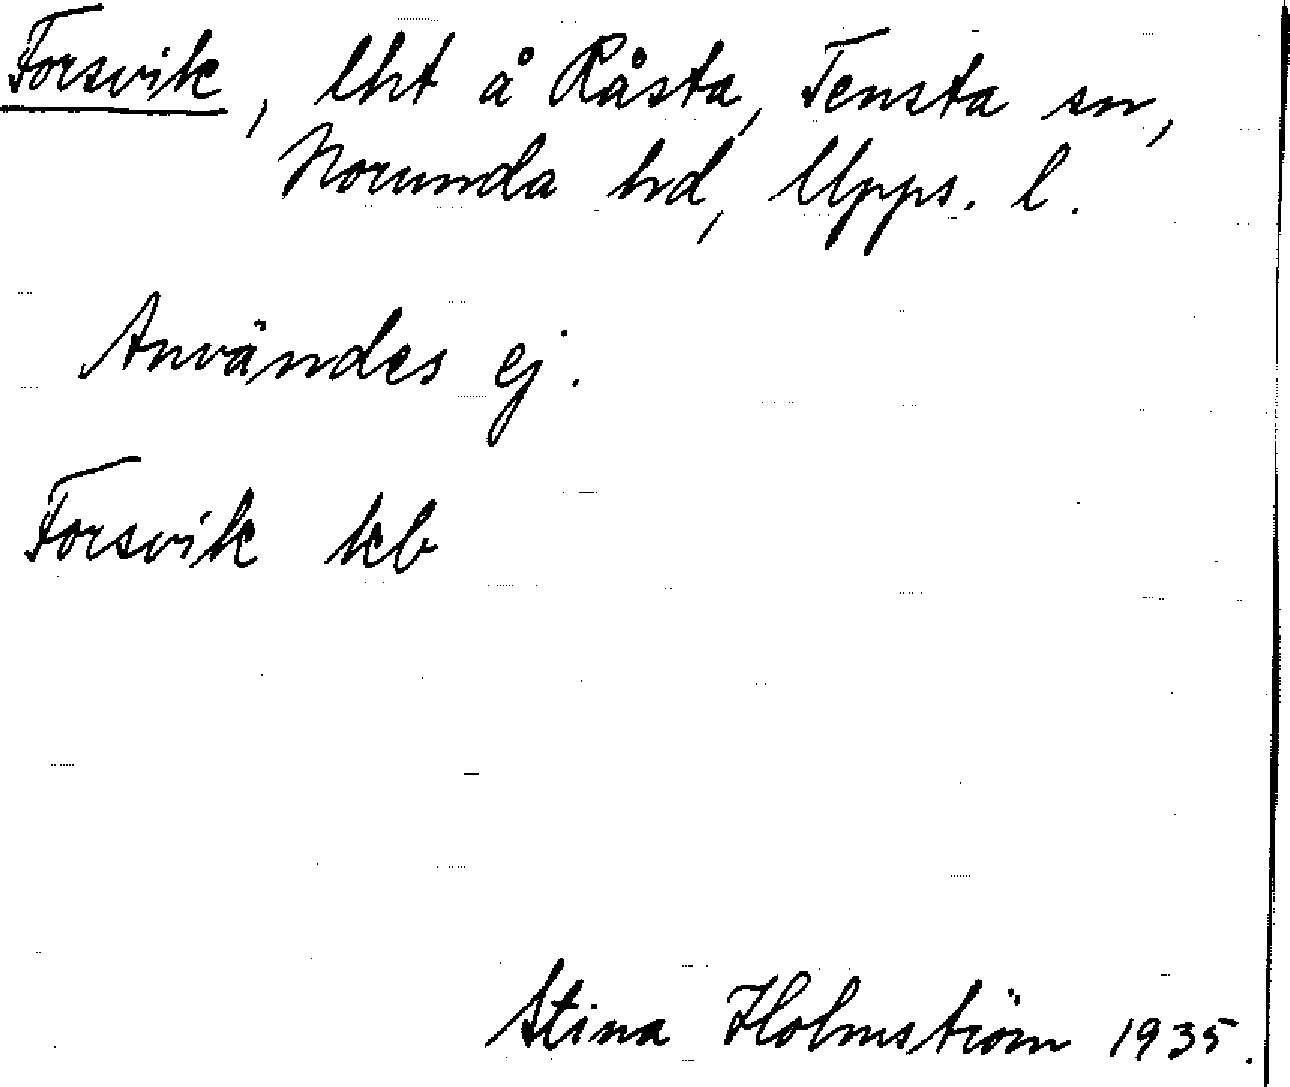 Forsvik, lht å Råsta, Tensta sn,
Norunda hd, Upps. l.
Användes ej.
Forsvik kb
Stina Holmström 1935.